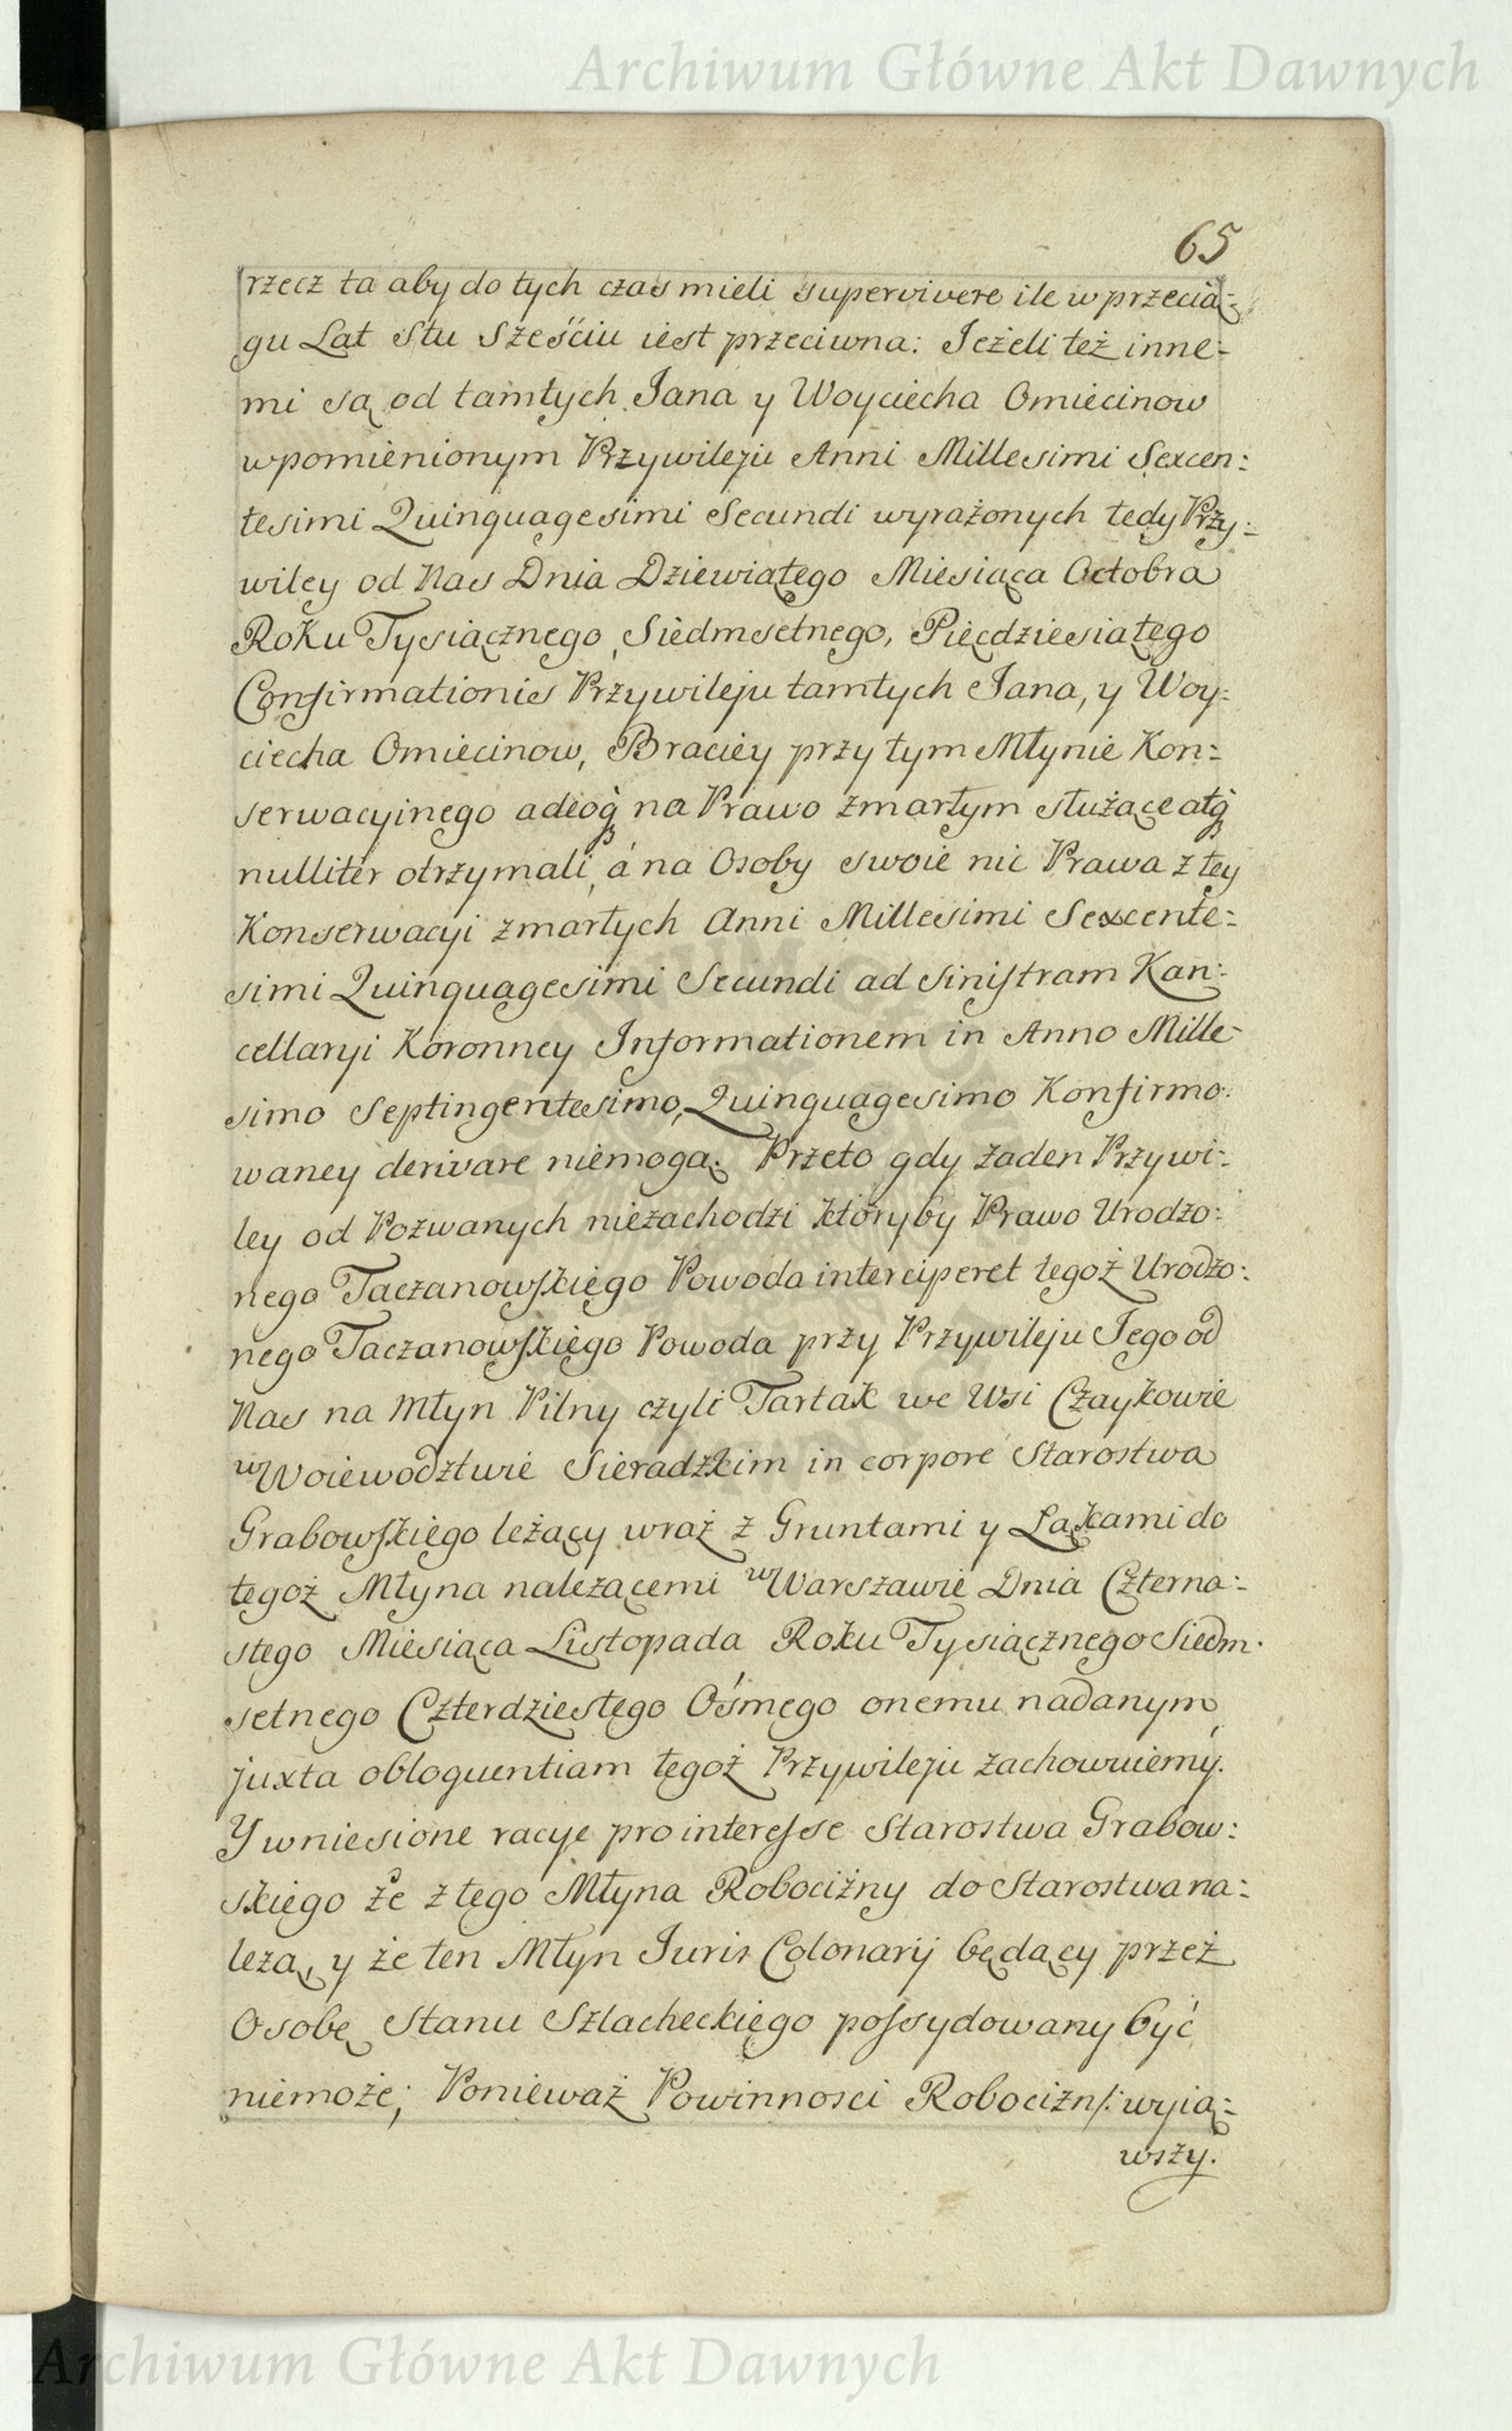 Archiwum Główne Akt Dawnych
65
rzecz ta aby do tych czas mieli supervivere ile w przecią-
gu Lat Stu Sześciu iest przeciwna: Jeżeli też inne-
mi są od tamtych Jana y Woyciecha Omiecinow
wpomienionym Przywileju Anni Millesimi Sexcen:
tesimi Quinquagesimi Secundi wyrażonych tedy Przy:
wiley od Nas Dnia Dziewiątego Miesiąca Octobra
Roku Tysiącznego, Siedmsetnego, Pięcdziesiątego
Confirmationis Przywileju tamtych Jana, y Woy:
ciecha Omiecinow, Braciey przy tym Młynie Kon:
serwacyinego adeoq̃ na Prawo zmarłym służące atq̃
nulliter otrzymali, á na Osoby swoie nic Prawa z tey
Konserwacyi zmarłych Anni Millesimi Sexcente:
simi Quinquagesimi Secundi ad sinistram Kan:
cellaryi Koronney Informationem in Anno Mille-
simo Septingentesimo, Quinquagesimo Konfirmo:
waney derivare niemogą. Przeto gdy żaden Przywi:
ley od Pozwanych niezachodzi któryby Prawo Urodzo:
nego Taczanowskiego Powoda interciperet tegoż Urodzo:
nego Taczanowskiego Powoda przy Przywileju Jego od
Nas na Młyn Pilny czyli Tartak we Wsi Czaykowie
w Woiewodztwie Sieradzkim in corpore Starostwa
Grabowskiego leżący wraz z Gruntami y Łąkami do
tegoż Młyna należącemi w Warszawie Dnia Czterna:
stego Miesiąca Listopada Roku Tysiącznego Siedm:
setnego Czterdziestego Ośmego onemu nadanym,
juxta obloquentiam tegoż Przywileju zachowuiemy.
Y wniesione racye pro interesse Starostwa Grabow:
skiego że z tego Młyna Robocizny do Starostwa na:
leżą, y że ten Młyn Juris Colonarij będący przez
Osobę Stanu Szlacheckiego possydowany być
niemoże; Ponieważ Powinnosci Robocizn/: wyią:
wszy.
Archiwum Główne Akt Dawnych